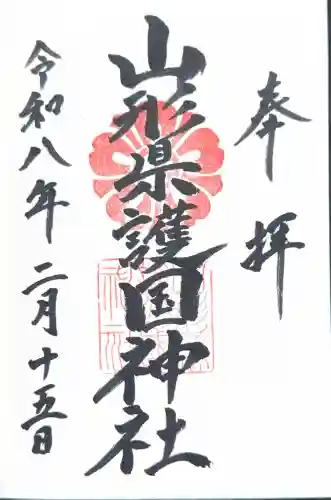 奉拝
山形県護国神社
令和八年二月十五日